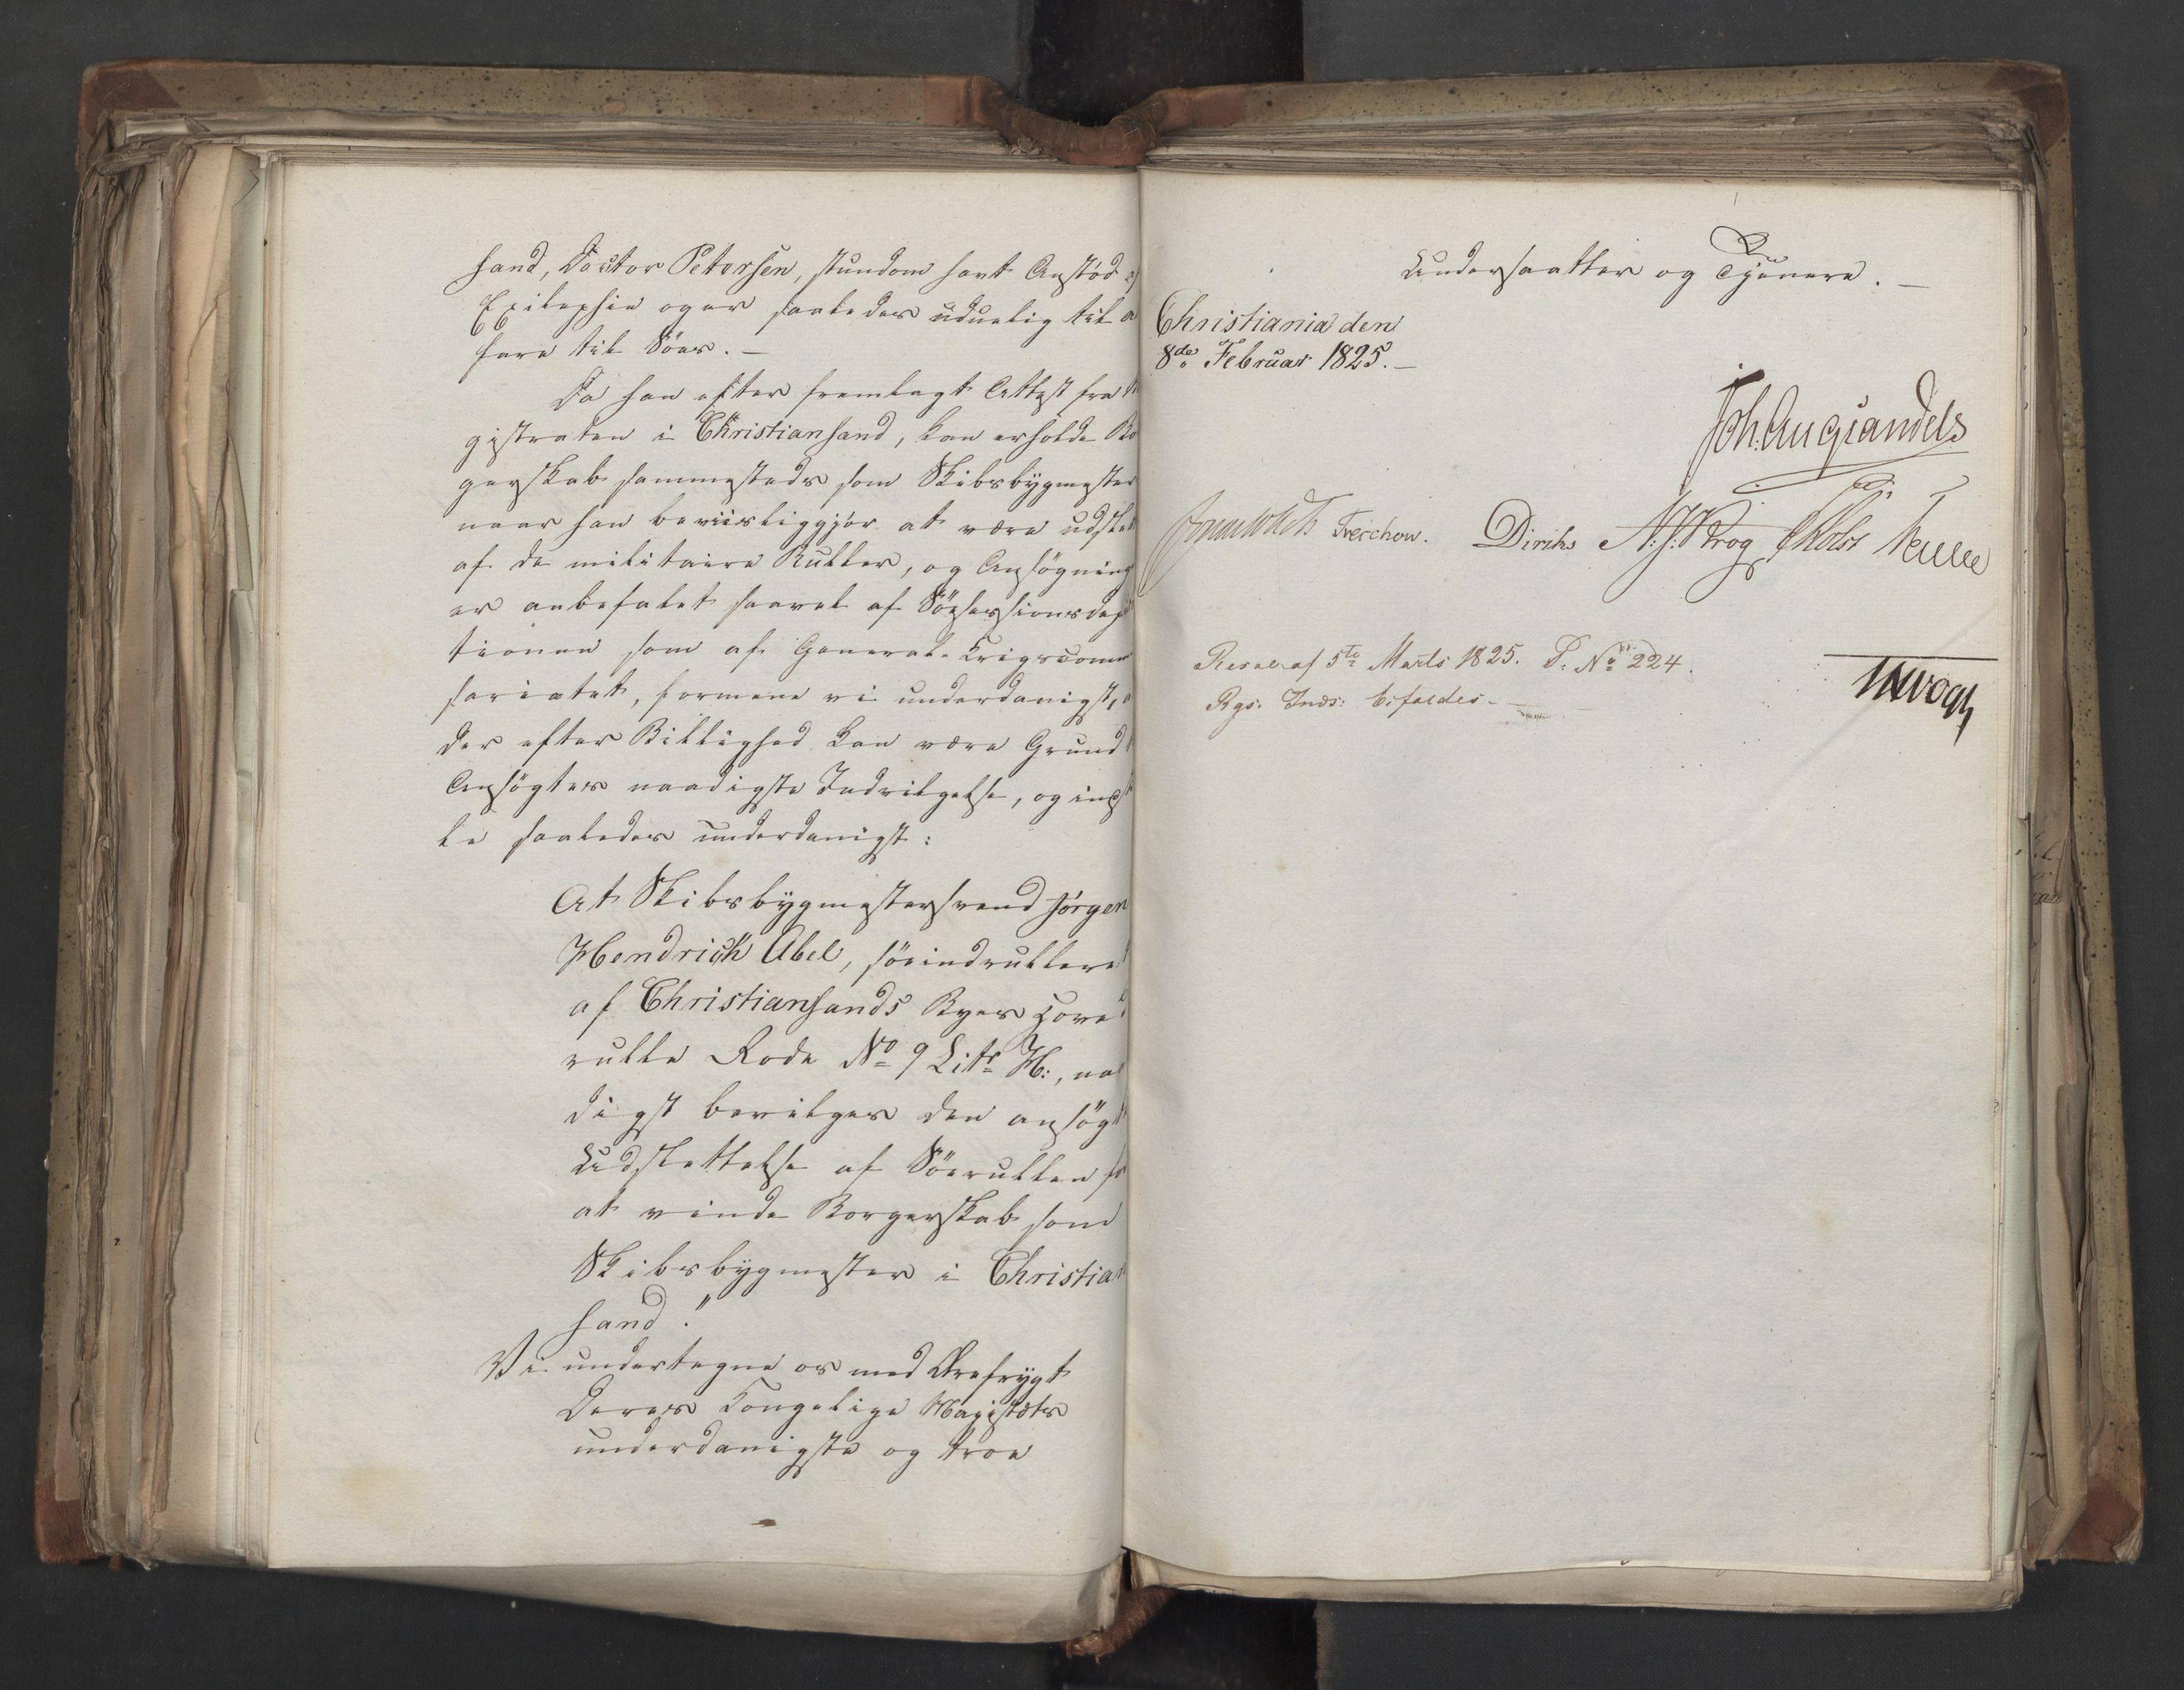 sand, Doctor Petersen, stundom havt Anstød af
Epilepsie og er saaledes uduelig til a
fare til Söes. —
Da han efter fremlagt Attest fra M
gistraten i Christiansand, kan erholde Bo
gerskab sammesteds som Skibsbygmester
naar han beviisliggjör at være udslet
af de militaire Ruller, og Ansögning
er anbefalet saavel af Söesessionsdep
tionen som af General-Krigscomm
sariatet, formene vi underdanigst, a
der efter Billighed kan være Grund t
Ansögtes naadigste Indvilgelse, og indst
le saaledes underdanigst:
At Skibsbygmestersvend Jörgen
Hendrich Abel, söeindrulleret
af Christiansands Byes Hoved
rulle Rode No 9 Litr H:, naa
digst bevilges den ansögt
Udslettelse af Söerullen for
at vinde Borgerskab som
Skibsbygmester i Christian
sand."
Vi undertegne os med Ærefrygt
Deres Kongelige Majestæts
underdanigste og troe
Undersaatter og Tjenere. —
Christiania den
8de Februar 1825. —
Joh. Aug. Sandels
Treschow. Diriks A: J: Krog P Holst
Resol: af 5te Marts 1825. P: No 224.
Rgs. Inds: bifaldes. —